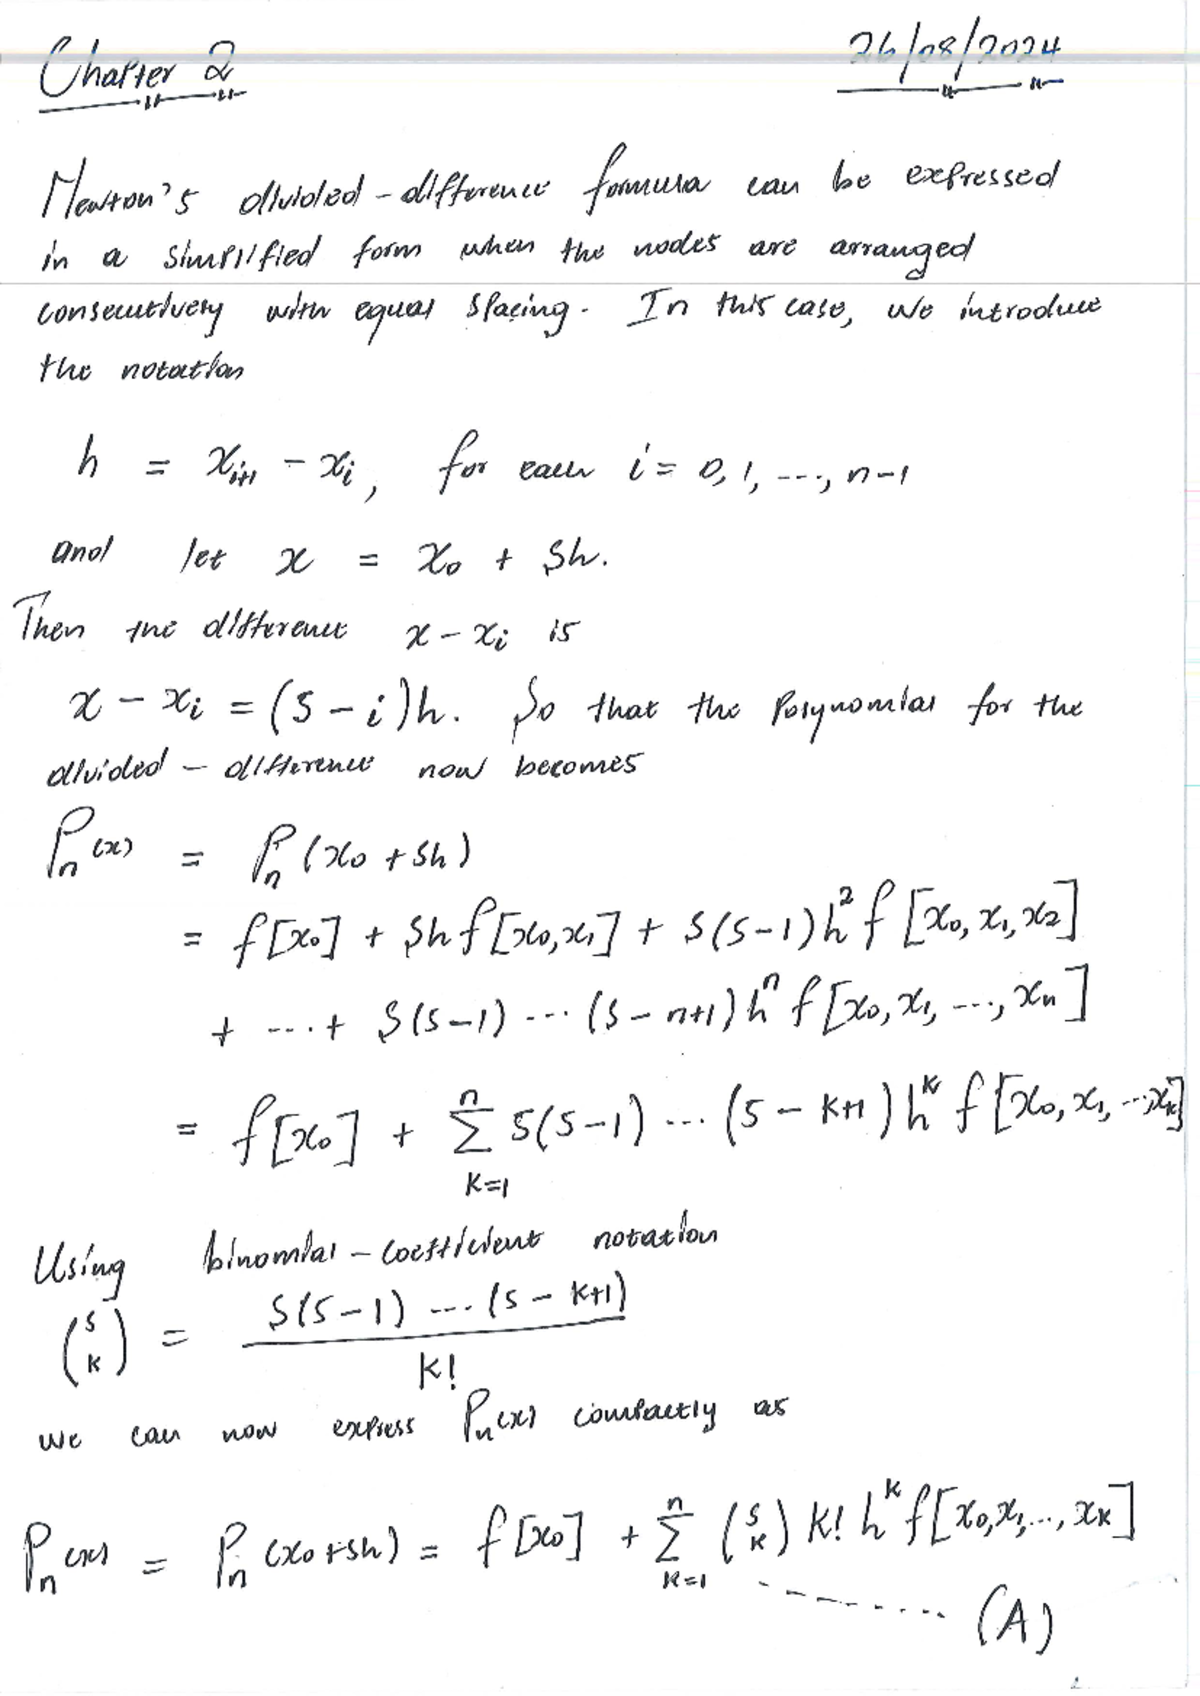 Chapter 2
26/08/2024
Newton's divided-difference formula can be expressed
in a simplified form when the nodes are arranged
consecutively with equal spacing. In this case, we introduce
the notation
h = x_{i+1} - x_i, for each i = 0, 1, ..., n-1
and let x = x_0 + sh.
Then the difference x - x_i is
x - x_i = (s - i)h. So that the Polynomial for the
divided-difference now becomes
P_n(x) = P_n(x_0 + sh)
= f[x_0] + sh f[x_0, x_1] + s(s-1)h^2 f[x_0, x_1, x_2]
+ ... + s(s-1) ... (s-n+1) h^n f[x_0, x_1, ..., x_n]
= f[x_0] + \sum_{k=1}^{n} s(s-1) ... (s-k+1) h^k f[x_0, x_1, ..., x_k]
Using binomial-coefficient notation
\binom{s}{k} = \frac{s(s-1) ... (s-k+1)}{k!}
we can now express P_n(x) compactly as
P_n(x) = P_n(x_0+sh) = f[x_0] + \sum_{k=1}^{n} \binom{s}{k} k! h^k f[x_0, x_1, ..., x_k]
......... (A)